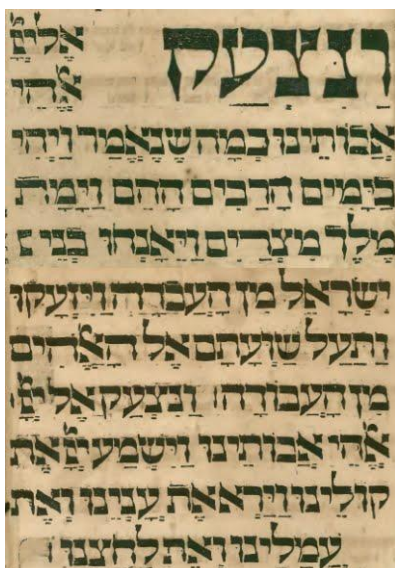 ונצעק אל ייָ
ﭏהי
אבותינו כמה שנאמר ויהי
בימים הרבים ההם וימת
מלך מצרים ויאנחו בני י
ישראל מן העבדה ויזעקו
ותעל שועתם אל הﭏהים
מן העבודה: ונצעק אל ייָ
ﭏהי אבותינו וישמע ייָ את
קולינו וירא את ענינו ואת
עמלינו ואת לחצנו: